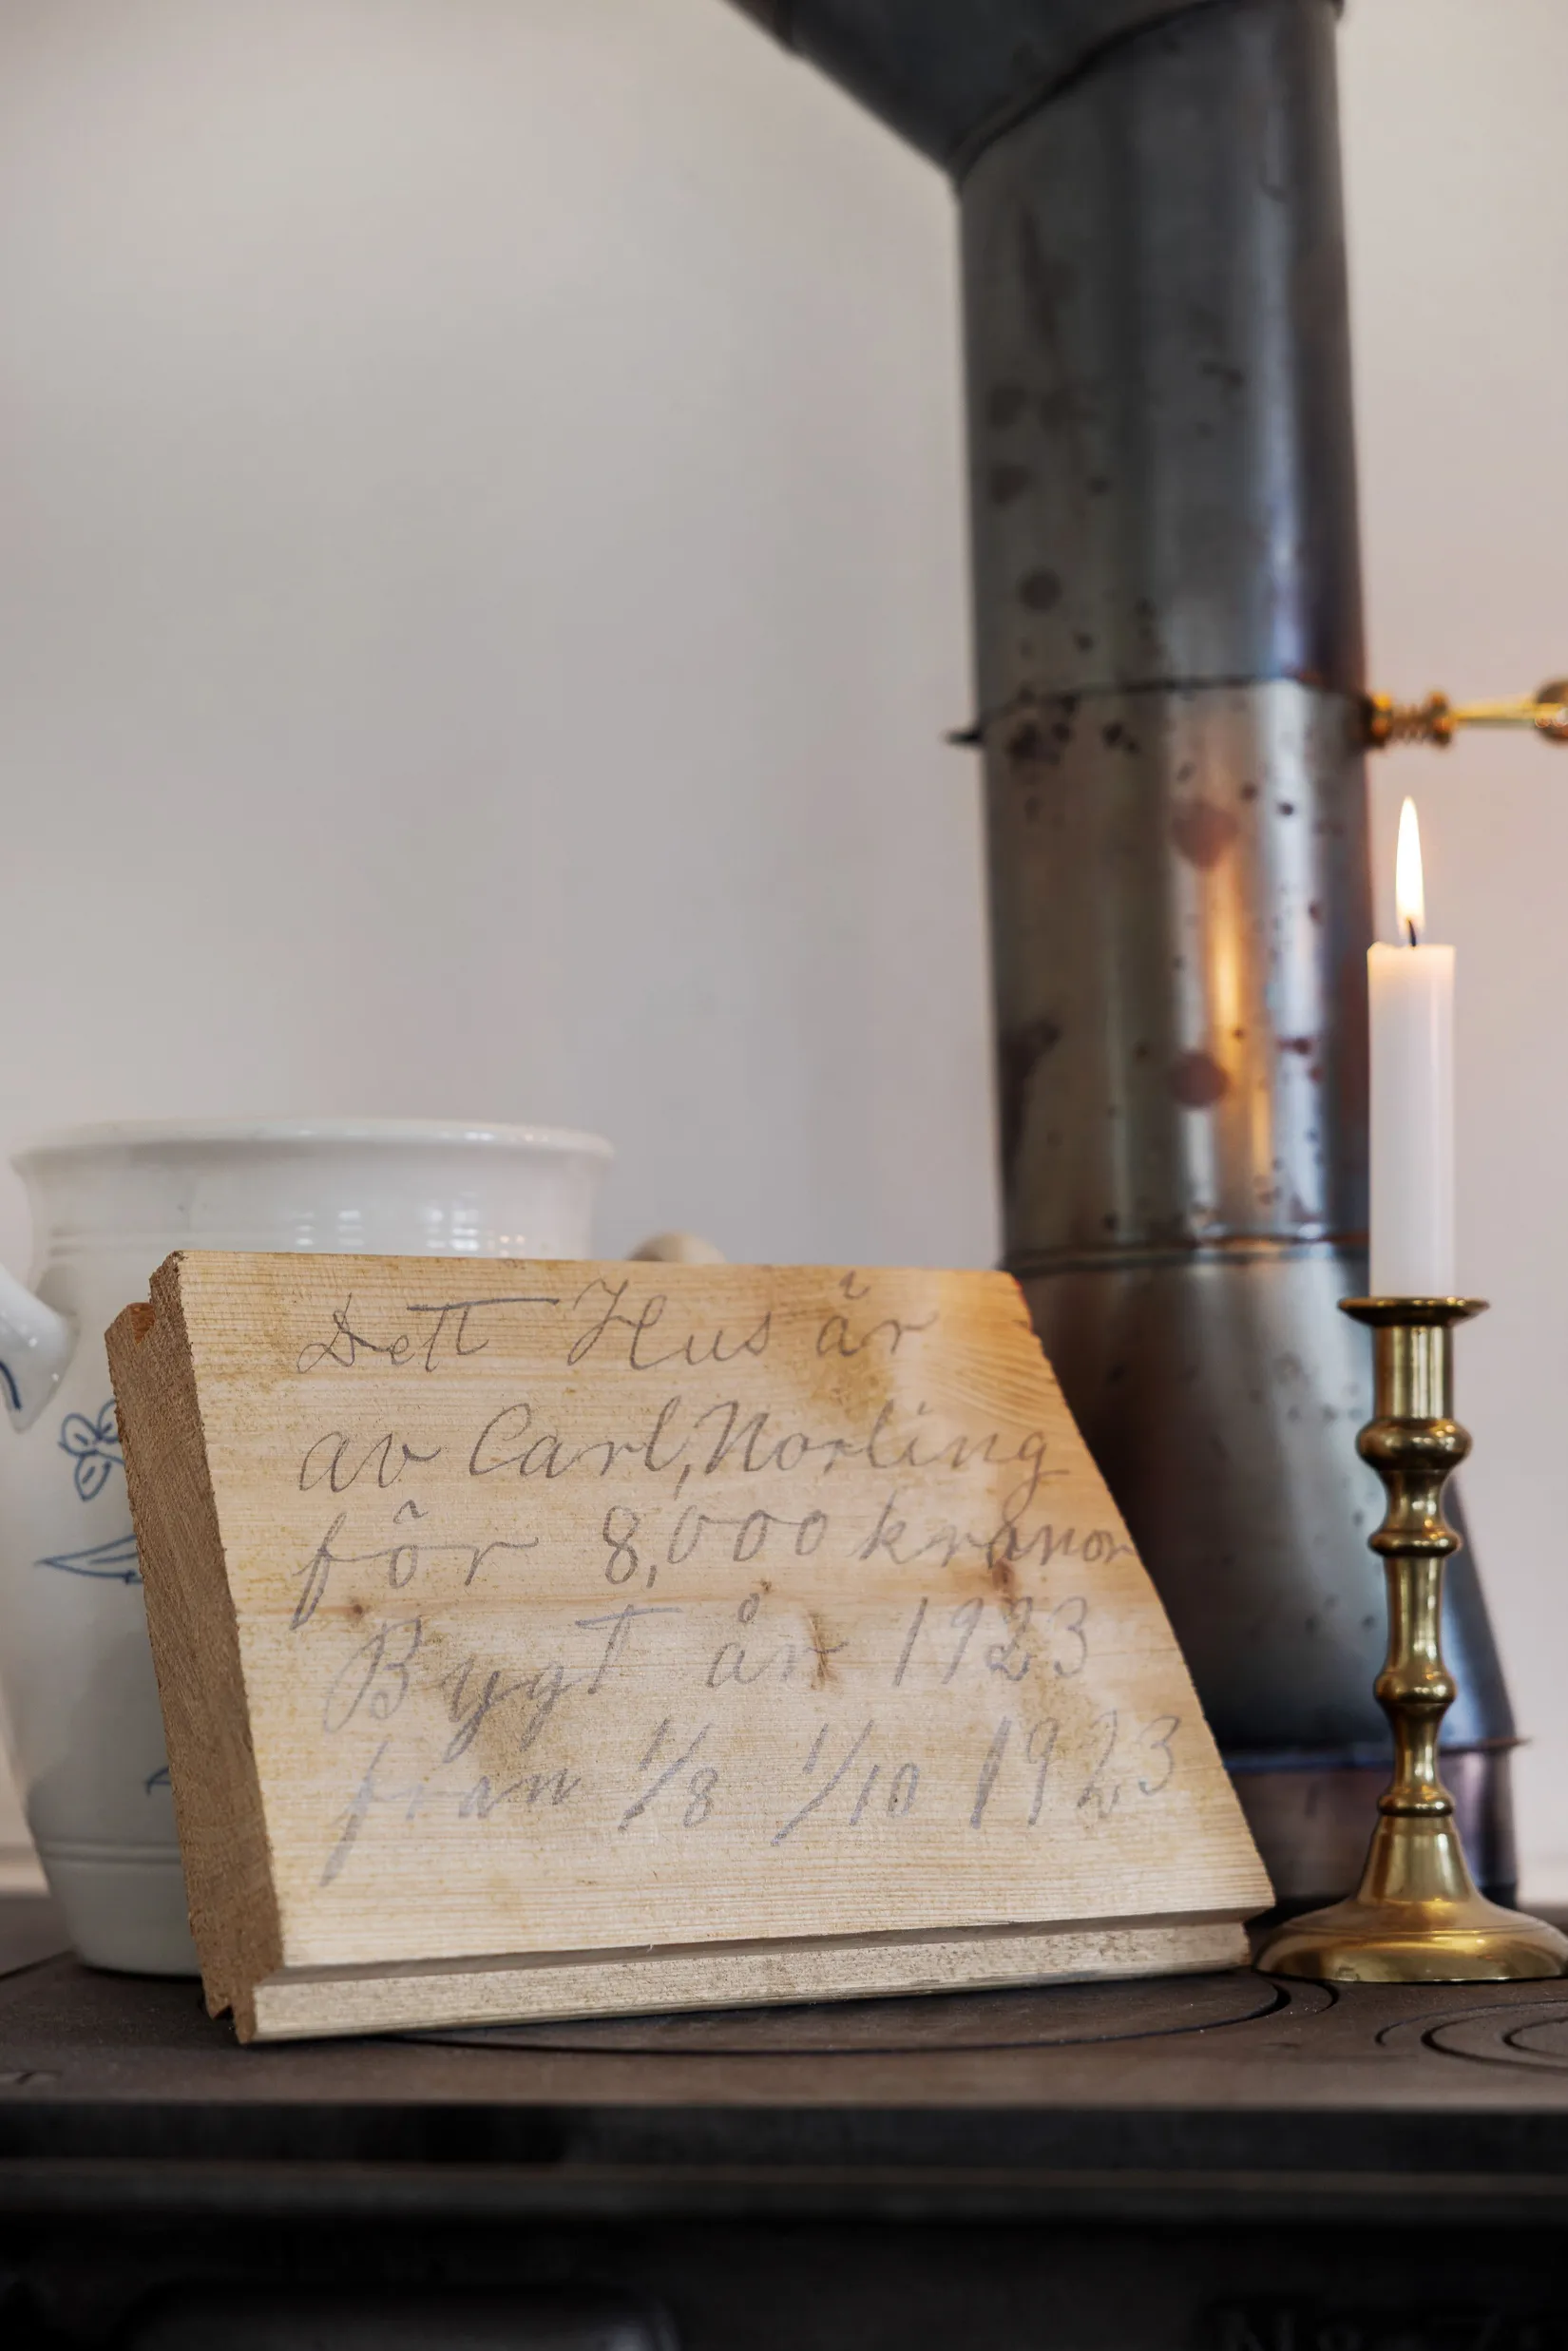 Dett Hus är
av Carl, Norling
för 8,000 kronor
Bygt år 1923
från 1/8 1/10 1923